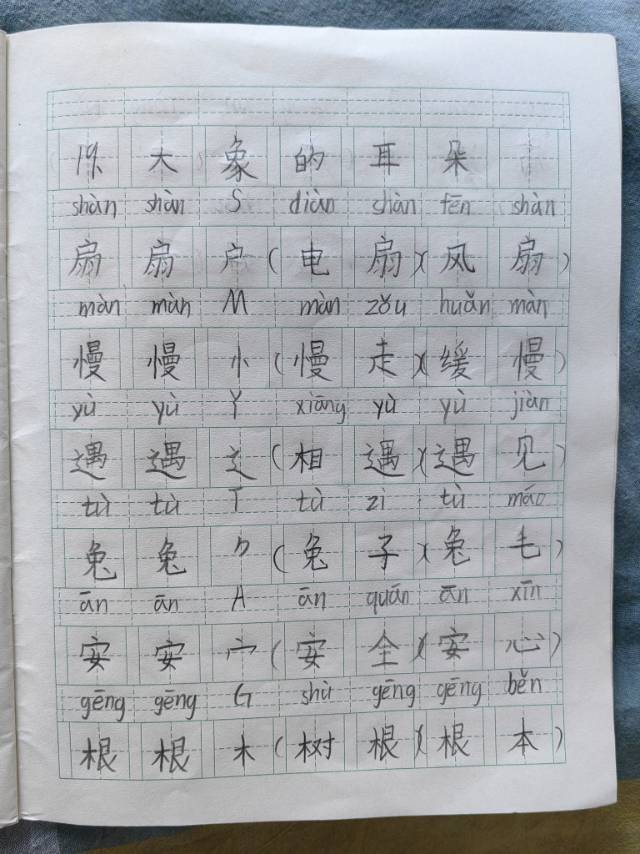 19、大象的耳朵
shàn shàn S diàn shàn fēn shàn
扇 扇 户 (电扇)(风扇)
màn màn M màn zǒu huǎn màn
慢 慢 忄 (慢走)(缓慢)
yù yù Y xiāng yù yù jiàn
遇 遇 辶 (相遇)(遇见)
tù tù T tù zi tù máo
兔 兔 ⺈ (兔子)(兔毛)
ān ān A ān quán ān xīn
安 安 宀 (安全)(安心)
gēng gēng G shù gēng gēng běn
根 根 木 (树根)(根本)